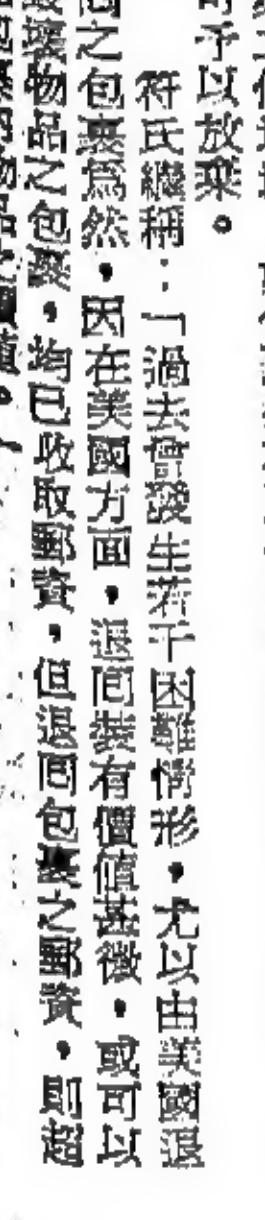 可予以放棄。
符氏繼稱：「過去曾發生若干困難情形，尤以由美國退
回之包裹爲然，因在美國方面，退回裝有價值甚微，或可以
毀壞物品之包裹，均已收取郵資，但退回包裹之郵資，則超